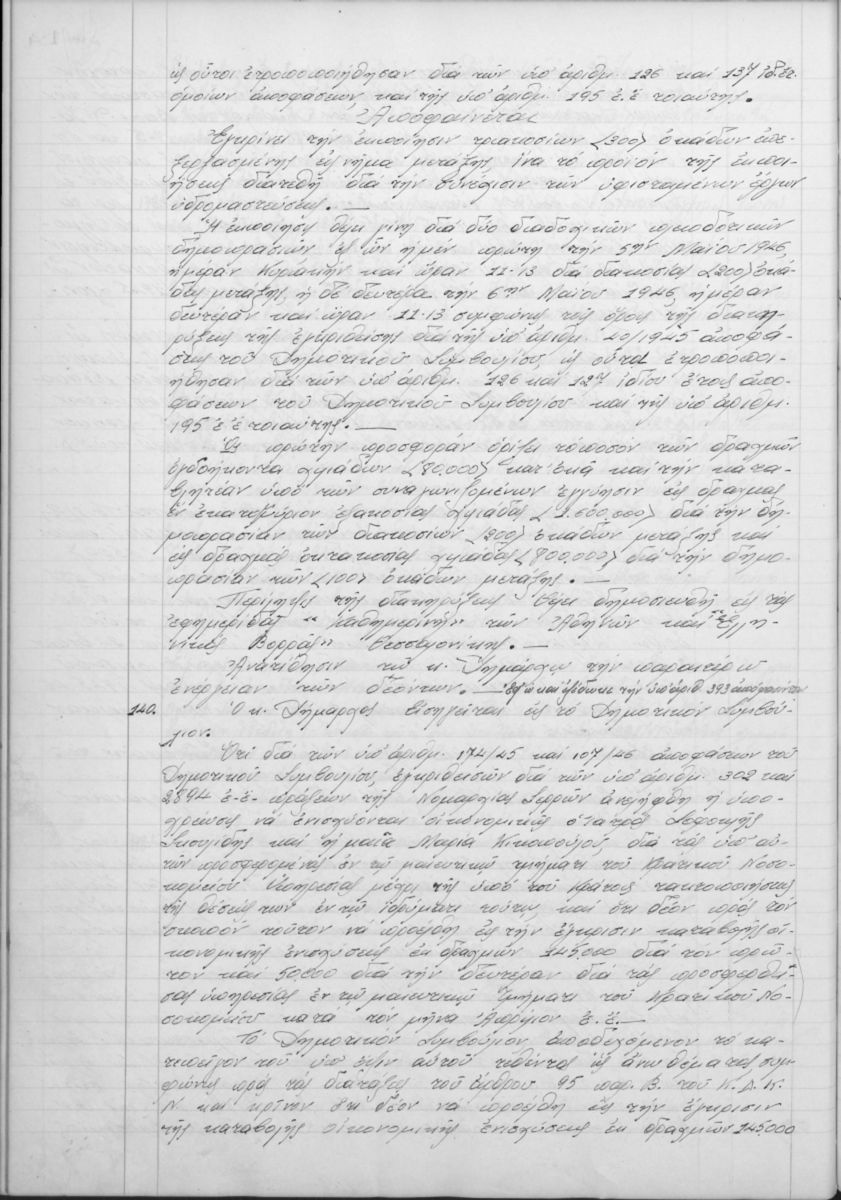 ὡς οὗτοι ἐτροποποιήθησαν διὰ τῶν ὑπ' ἀριθμ. 126 καὶ 137
ὁμοίων ἀποφάσεων καὶ τῆς ὑπ' ἀριθμ. 195 ἐ.ἔ τοιαύτης.
Ἀποφαίνεται
Ἐγκρίνει τὴν ἐκποίησιν τριακοσίων (300) ὀκάδων ἐπε-
ξεργασμένης εἰς νῆμα μετάξης ἵνα τὸ προϊὸν τῆς ἐκποι-
ήσεως διατεθῇ διὰ τὴν συνέχισιν τῶν ὑφισταμένων ἔργων
ὑδρομαστεύσεως. —
Ἡ ἐκποίησις θέλει γίνῃ διὰ δύο διαδοχικῶν πλειοδοτικῶν
δημοπρασιῶν ἐξ ὧν ἡ μὲν πρώτη τὴν 5ην Μαΐου 1946,
ἡμέραν Κυριακὴν καὶ ὥραν 11-13 διὰ διακοσίας (200) ὀκά-
δας μετάξης, ἡ δὲ δευτέρα τὴν 6ην Μαΐου 1946, ἡμέραν
Δευτέραν καὶ ὥραν 11-13 συμφώνως τοῖς ὅροις τῆς διακη-
ρύξεως τῆς ἐγκριθείσης διὰ τῆς ὑπ' ἀριθμ. 40/1945 ἀποφά-
σεως τοῦ Δημοτικοῦ Συμβουλίου, ὡς οὗτοι ἐτροποποι-
ήθησαν διὰ τῶν ὑπ' ἀριθμ. 126 καὶ 127 ἰδίου ἔτους ἀπο-
φάσεων τοῦ Δημοτικοῦ Συμβουλίου καὶ τῆς ὑπ' ἀριθμ.
195 ἐ.ἔ τοιαύτης. —
Ὡς πρώτην προσφορὰν ὁρίζει τὸ ποσὸν τῶν δραχμῶν
ὀγδοήκοντα χιλιάδων (80.000) κατ' ὀκᾶ καὶ τὴν κατα-
βλητέαν ὑπὸ τῶν συναγωνιζομένων ἐγγύησιν εἰς δραχμὰς
ἓν ἑκατομμύριον ἑξακοσίας χιλιάδας (1.600.000) διὰ τὴν δη-
μοπρασίαν τῶν διακοσίων (200) ὀκάδων μετάξης καὶ
εἰς δραχμὰς ὀκτακοσίας χιλιάδας (800.000) διὰ τὴν δημο-
πρασίαν τῶν (100) ὀκάδων μετάξης. —
Περίληψις τῆς διακηρύξεως θέλει δημοσιευθῇ εἰς τὰς
ἐφημερίδας "Καθημερινὴ" τῶν Ἀθηνῶν καὶ "Ἑλλη-
νικὸς Βορρᾶς" Θεσσαλονίκης. —
Ἀνατίθησιν τῷ κ. Δημάρχῳ τὴν παραιτέρω
ἐνέργειαν τῶν δεόντων. — Ἐφ' ᾧ καὶ ἐξεδόθη ἡ ὑπ' ἀριθ. 393 ἀπόφασις
140. Ὁ κ. Δήμαρχος εἰσηγεῖται εἰς τὸ Δημοτικὸν Συμβού-
λιον.
Ὅτι διὰ τῶν ὑπ' ἀριθμ. 174/45 καὶ 107/46 ἀποφάσεων τοῦ
Δημοτικοῦ Συμβουλίου, ἐγκριθεισῶν διὰ τῶν ὑπ' ἀριθμ. 302 καὶ
2894 ἐ.ἔ. πράξεων τῆς Νομαρχίας Σερρῶν ἀνελήφθη ἡ ὑπο-
χρέωσις νὰ ἐνισχύονται οἰκονομικῶς ὁ ἰατρὸς Σοφοκλῆς
καὶ ἡ μαῖα Μαρία Νικοπούλου διὰ τὰς ὑπ' αὐ-
τῶν προσφερομένας ἐν τῷ μαιευτικῷ τμήματι τοῦ Κρατικοῦ Νοσο-
κομείου ὑπηρεσίας μέχρι τῆς ὑπὸ τοῦ Κράτους τακτοποιήσεως
τῆς θέσεώς των ἐν τῷ ἱδρύματι τούτῳ καὶ ὅτι δέον πρὸς τὸν
σκοπὸν τοῦτον νὰ προέλθῃ εἰς τὴν ἔγκρισιν καταβολῆς οἰ-
κονομικῆς ἐνισχύσεως ἐκ δραχμῶν 145.000 διὰ τὸν πρῶ-
τον καὶ 50.000 διὰ τὴν δευτέραν διὰ τὰς προσφερθεί-
σας ὑπηρεσίας ἐν τῷ μαιευτικῷ τμήματι τοῦ Κρατικοῦ Νο-
σοκομείου κατὰ τὸν μῆνα Ἀπρίλιον ἐ.ἔ. —
Τὸ Δημοτικὸν Συμβούλιον ἀποδεχόμενον τὸ κα-
τεπεῖγον τοῦ ὑπ' ὄψιν αὐτοῦ τεθέντος ὡς ἄνω θέματος συμ-
φώνως πρὸς τὰς διατάξεις τοῦ ἄρθρου 95 παρ. Β. τοῦ Κ.Δ.Κ.
Ν. καὶ κρῖνον ὅτι δέον νὰ προέλθῃ εἰς τὴν ἔγκρισιν
τῆς καταβολῆς οἰκονομικῆς ἐνισχύσεως ἐκ δραχμῶν 145.000